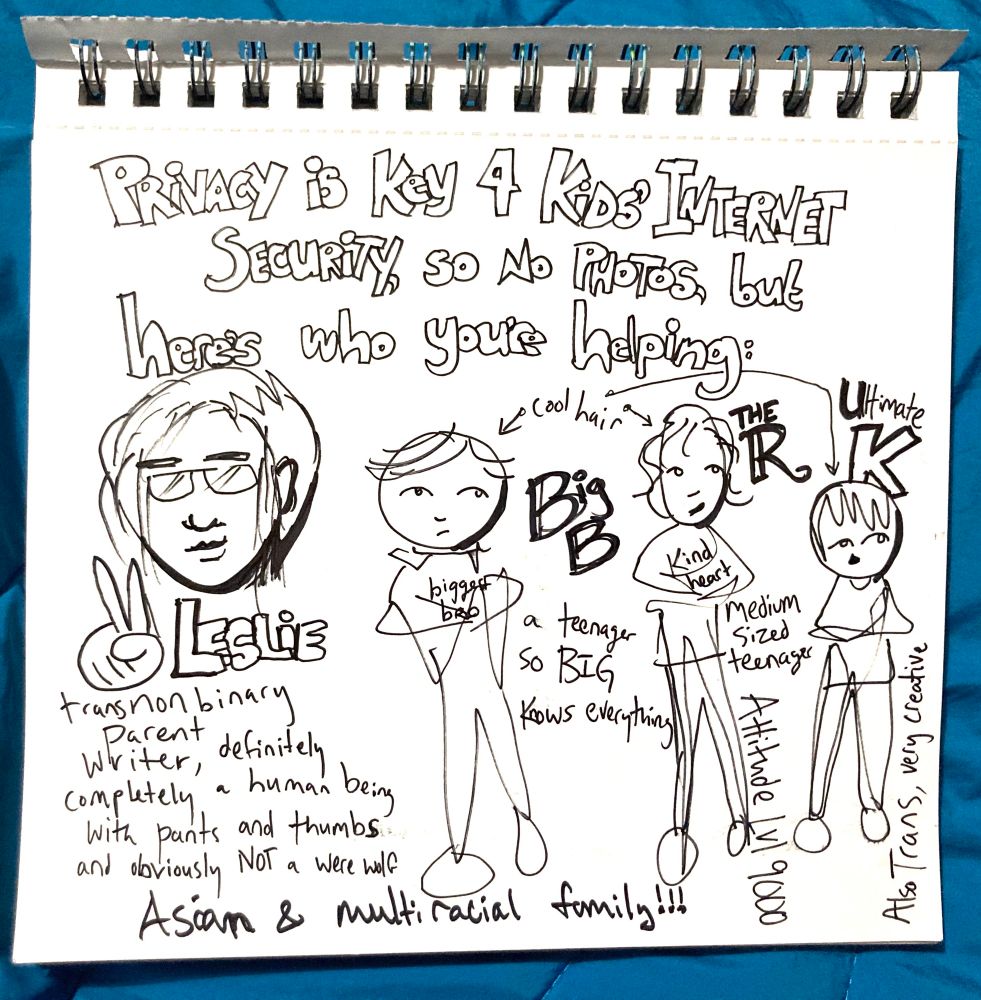 PRIVACY is Key 4 KiDS' INTERNET
SECURITY, so No PHOTOS, but
here's who you're helping:
Cool hair
LESLIE
transnonbinary
parent
writer, definitely
completely a human being
with pants and thumbs
and obviously NOT a were wolf
biggest
bro
Big
B
a teenager
so BIG
knows everything
THE
R
Kind
heart
Medium
Sized
teenager
Attitude Lvl 9000
Ultimate
K
Also Trans, very creative
Asian & multiracial family!!!